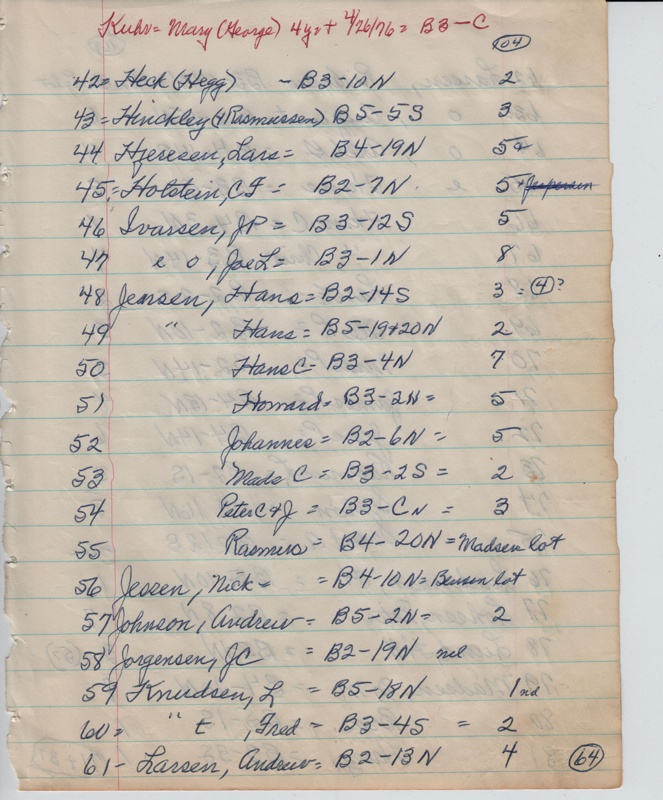 Kuhr = Mary (George) 4 yr + 4/26/76 = B3-C
104
42 = Heck (Hegg) - B3-10N 2
43 = Hinckley (+Rasmussen) B5-5S 3
44 Hjeresen, Lars = B4-19N 5+
45 = Holstein, CF = B2-7N. 5 + Jespersen
46 Ivarsen, JP = B3-12S 5
47 e o, Joe L = B3-1N 8
48 Jensen, Hans = B2-14S 3 = (4)?
49 " Hans = B5-19+20N 2
50 Hans C = B3-4N 7
51 Howard = B3-2N = 5
52 Johannes = B2-6N = 5
53 Mads C = B3-2S = 2
54 Peter C + J = B3-CN = 3
55 Rasmus = B4-20N = Madsen lot
56 Jessen, Nick = = B4-10N = Benson lot
57 Johnson, Andrew = B5-2N = 2
58 Jorgensen, JC = B2-19N nd
59 Knudsen, L = B5-18N 1 nd
60 = " t, Fred = B3-4S = 2
61 - Larsen, Andrew = B2-13N 4 (64)